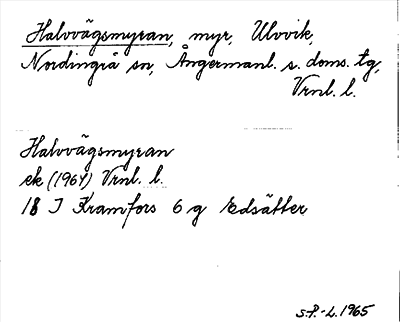 Halvvägsmyran, myr, Ulvvik,
Nordingrå sn, Ångermanl. s. doms. tg,
Vrnl. l.
Halvvägsmyran
ek (1964) Vrnl. l.
18 I Kramfors 6 g Edsätter
S.P.-L. 1965